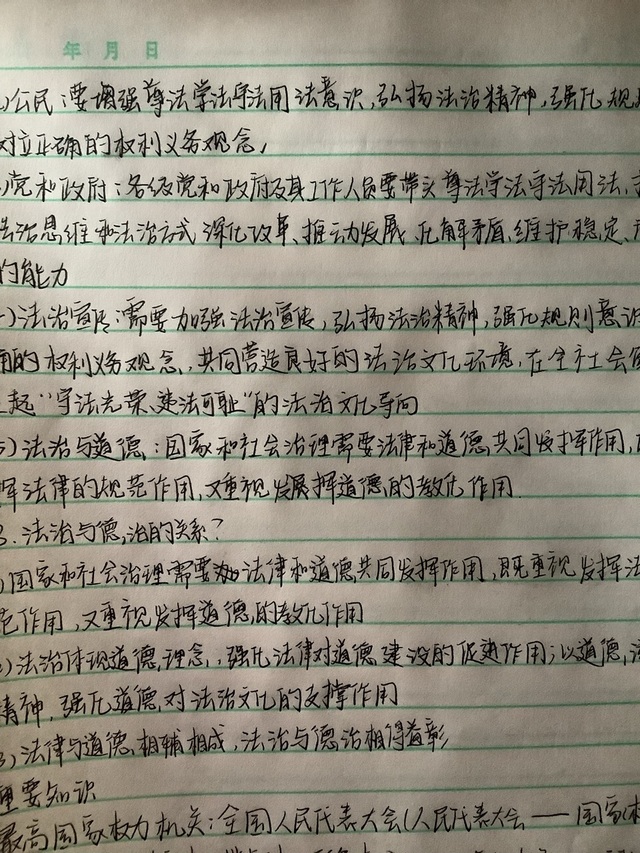 年 月 日
)公民:要增强尊法学法守法用法意识,弘扬法治精神,强化规
树立正确的权利义务观念,
)党和政府:各级党和政府及其工作人员要带头尊法学法守法用法,
法治思维和法治方式深化改革、推动发展、化解矛盾、维护稳定、
的能力
)法治宣传:需要加强法治宣传,弘扬法治精神,强化规则意识
确的权利义务观念,共同营造良好的法治文化环境,在全社会
起“守法光荣、违法可耻”的法治文化导向
)法治与道德:国家和社会治理需要法律和道德共同发挥作用,
挥法律的规范作用,又重视发展挥道德的教化作用.
3.法治与德治的关系?
)国家和社会治理需要法律和道德共同发挥作用,既重视发挥法
范作用,又重视发挥道德的教化作用
)法治体现道德理念,强化法律对道德建设的促进作用;以道德
精神,强化道德对法治文化的支撑作用
3)法律与道德相辅相成,法治与德治相得益彰
重要知识
最高国家权力机关:全国人民代表大会(人民代表大会——国家权